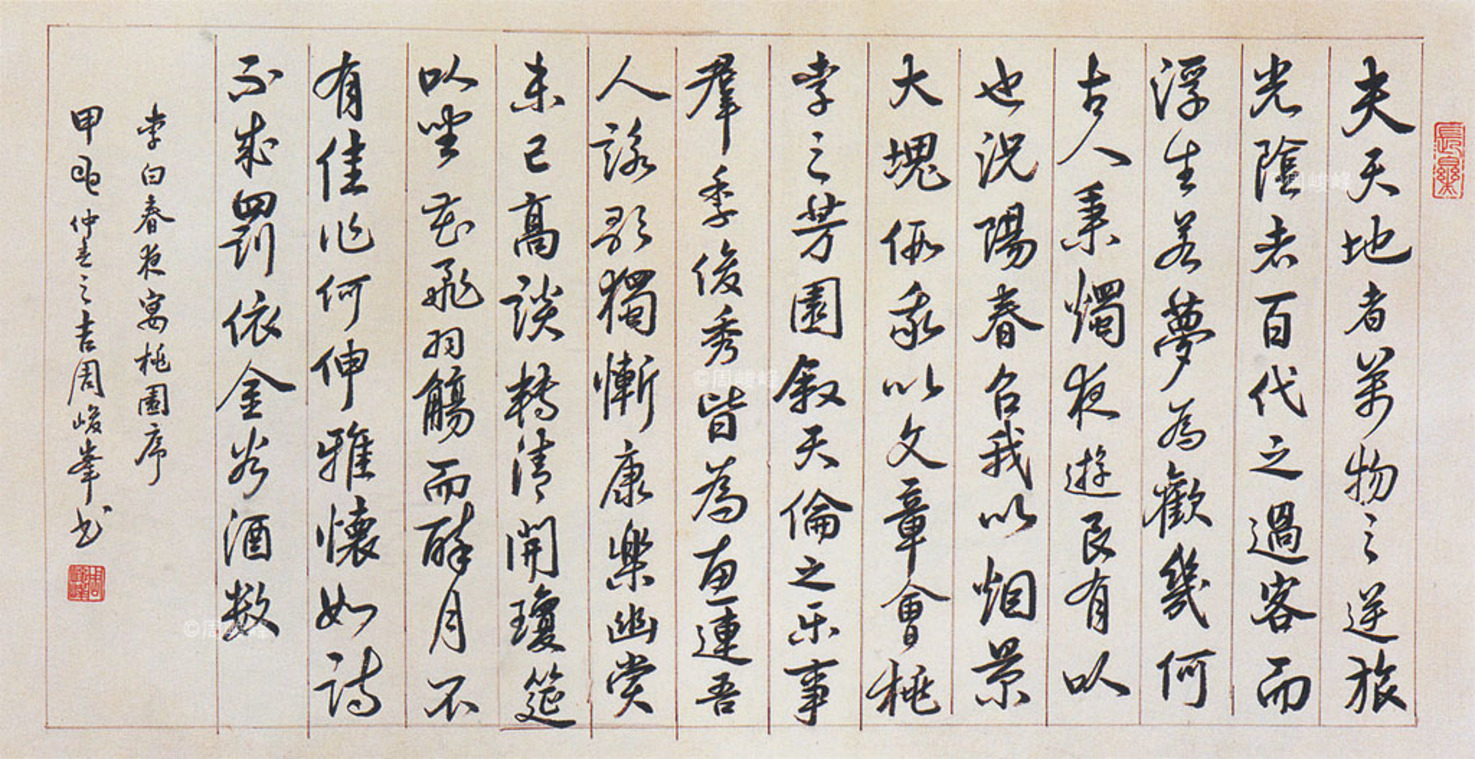 夫天地者萬物之逆旅
光陰者百代之過客而
浮生若夢為歡幾何
古人秉燭夜遊良有以
也況陽春召我以烟景
大塊假我以文章會桃
李之芳園叙天倫之乐事
羣季俊秀皆為惠連吾
人詠歌獨慚康樂幽賞
未已高談轉清開瓊筵
以坐花飛羽觴而醉月不
有佳作何伸雅懷如詩
不成罰依金谷酒数
李白春夜宴桃園序
甲申仲春之吉周峻峯书
長樂
©周峻峰